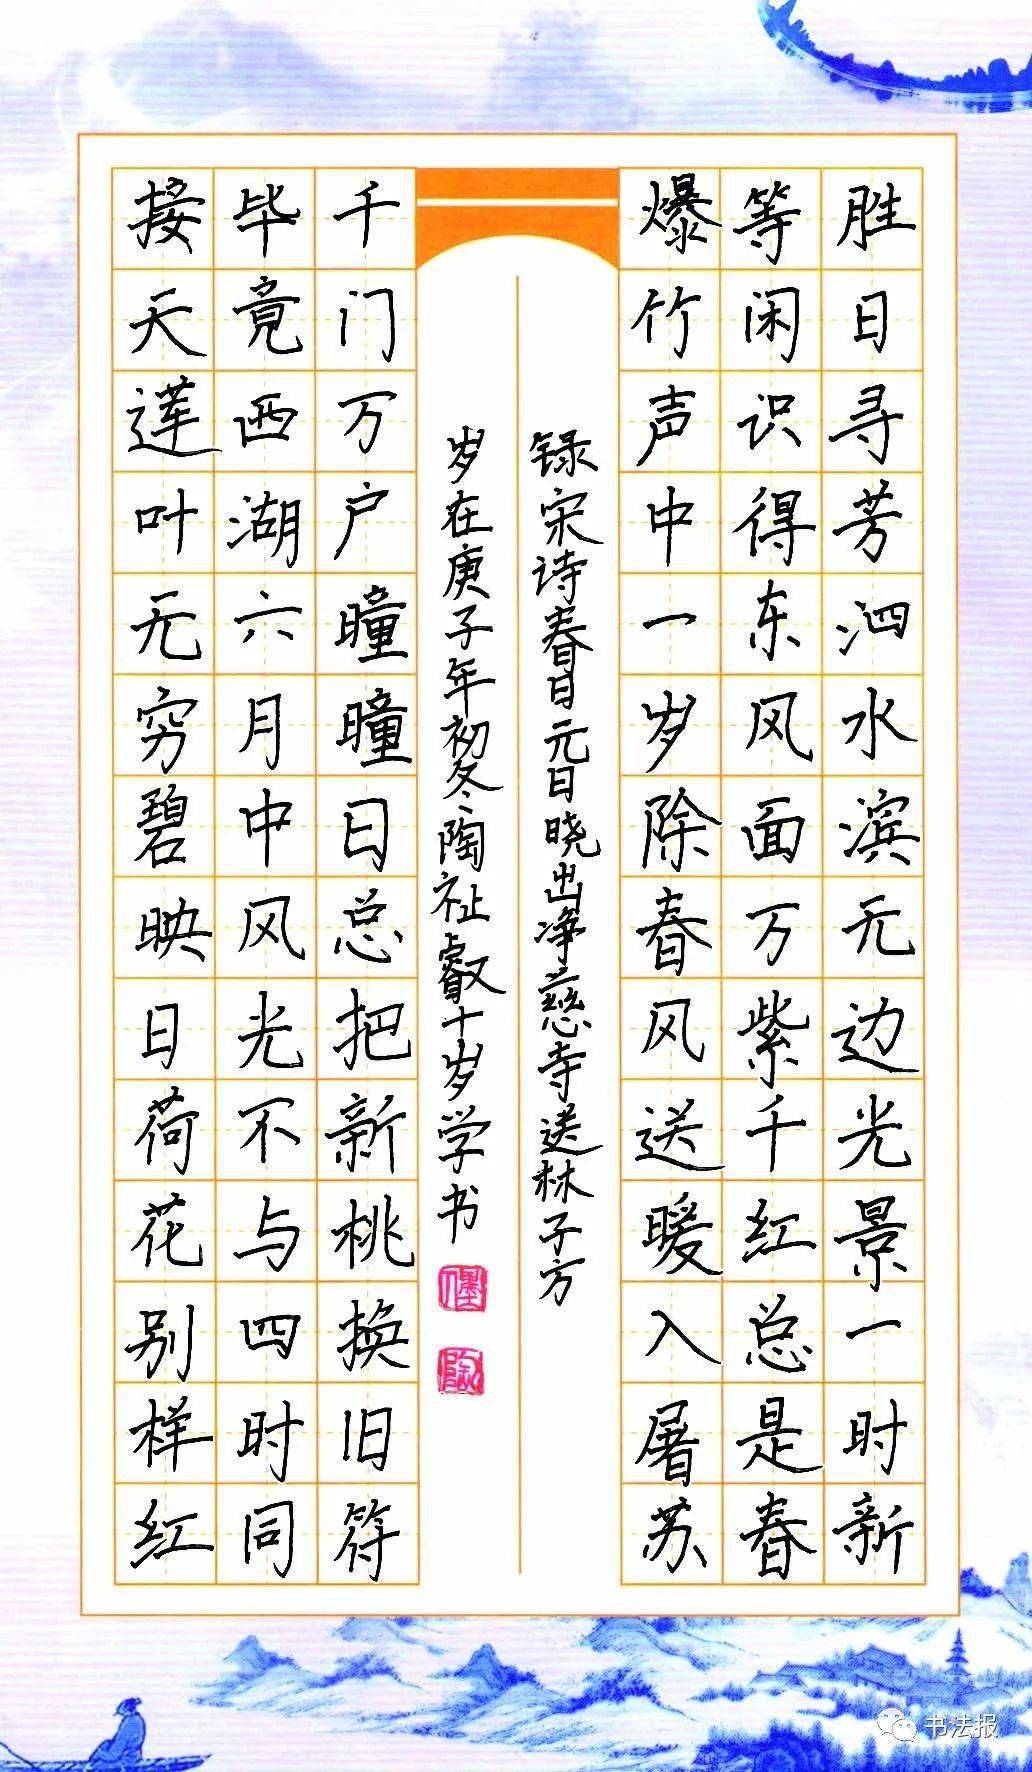 胜日寻芳泗水滨无边光景一时新
等闲识得东风面万紫千红总是春
爆竹声中一岁除春风送暖入屠苏
录宋诗春日元日晓出净慈寺送林子方
岁在庚子年初冬陶祉叡十岁学书
陶
千门万户曈曈日总把新桃换旧符
毕竟西湖六月中风光不与四时同
接天莲叶无穷碧映日荷花别样红
书法报